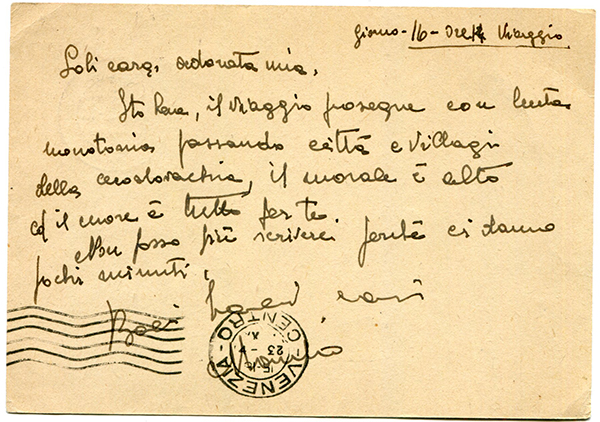 Giorno - 16 - Ore 14 Viaggio
cara, adorata mia,
Sto bene, il viaggio prosegue con lenta
monotonia passando città e villagi
della cecoslovacchia, il morale è alto
ed il cuore è tutto per te.
Non posso più scrivere perché ci danno
pochi minuti.
Baci cari
VENEZIA - CENTRO
23